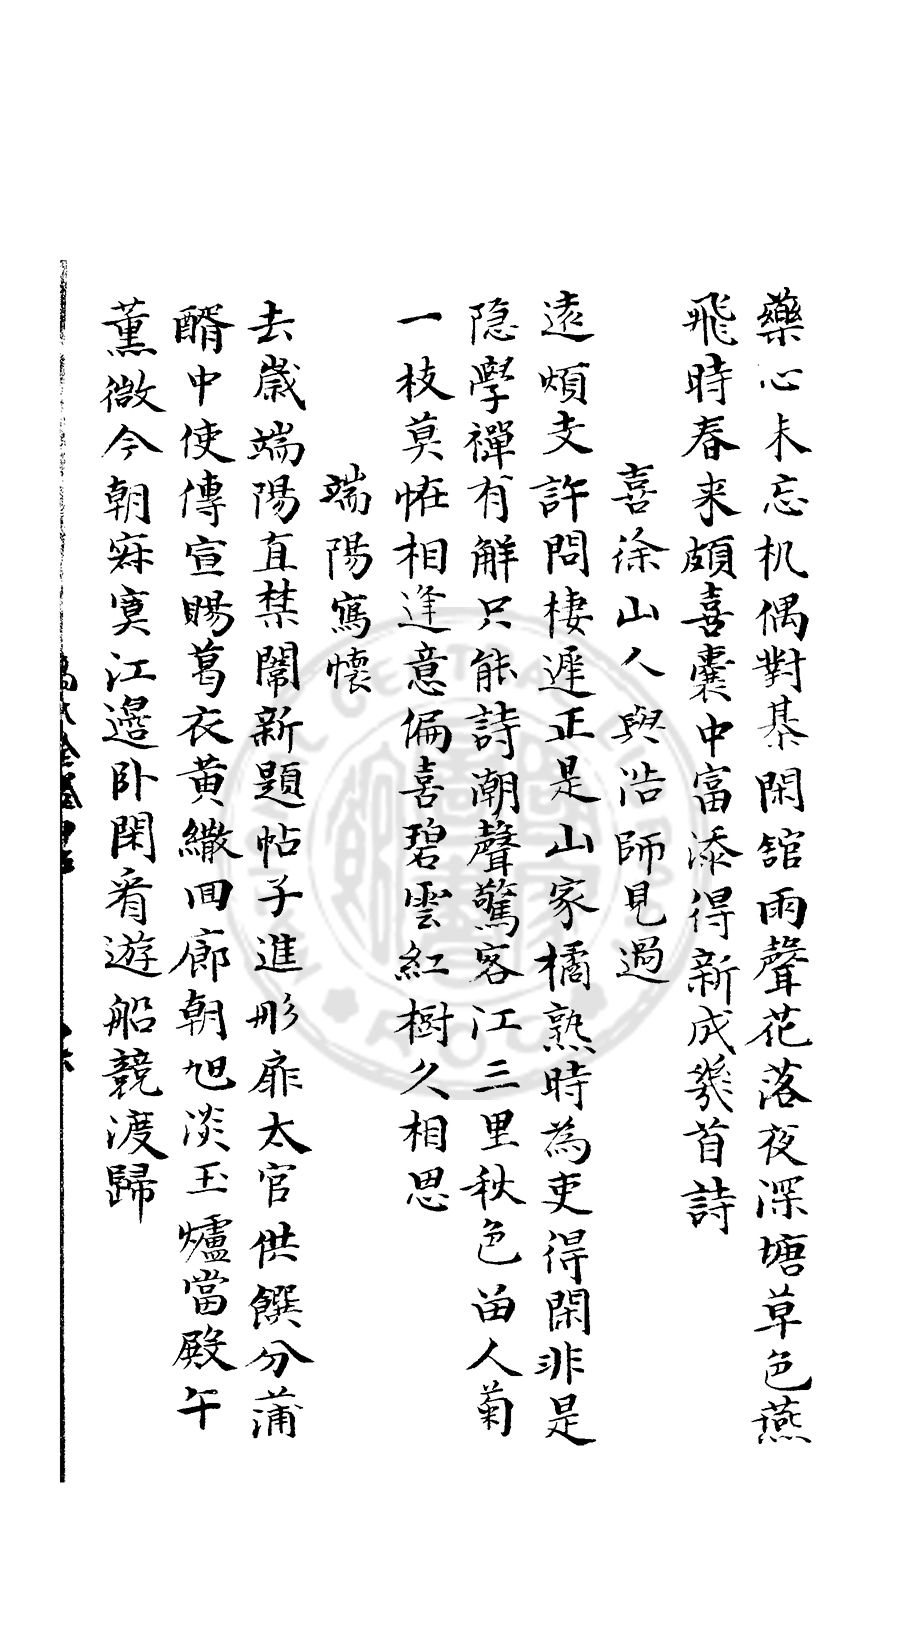 藥心未忘机偶對棊閑舘雨聲花落夜深塘草色燕
飛時春来頗喜囊中富添得新成幾首詩
喜徐山人與浩師見過
遠煩支許問棲遲正是山家橘熟時為吏得閑非是
隐學禪有解只能詩潮聲驚客江三里秋色留人菊
一枝莫恠相逢意偏喜碧雲紅樹久相思
端陽寫懷
去歲端陽直禁闈新題帖子進彤扉太官供饌分蒲
醑中使傳宣賜葛衣黄繖回廊朝旭淡玉爐當殿午
薰微今朝寂寞江邊卧閑看遊船競渡歸